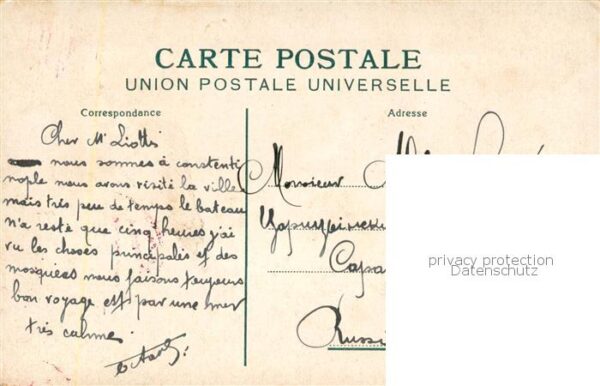 CARTE POSTALE
UNION POSTALE UNIVERSELLE
Correspondance
Cher Mr Liotti
nous sommes à constenti
nople nous avons visité la ville
mais très peu de temps le bateau
n'a resté que cinq heures j'ai
vu les choses principales et des
mosquées nous faisons toujours
bon voyage et par une mer
très calme
Adresse
Monsieur
Russi
privacy protection
Datenschutz